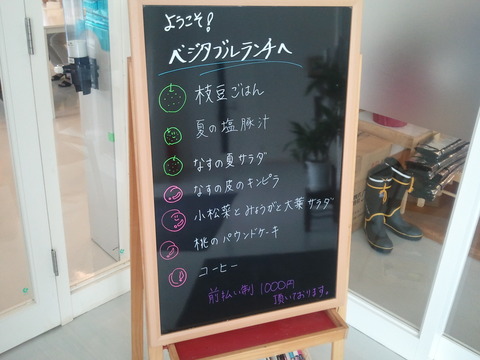 ようこそ!
ベジタブルランチへ
枝豆ごはん
夏の塩豚汁
なすの夏サラダ
なすの皮のキンピラ
小松菜とみょうがと大葉サラダ
桃のパウンドケーキ
コーヒー
前払い制 1000円
頂いております。